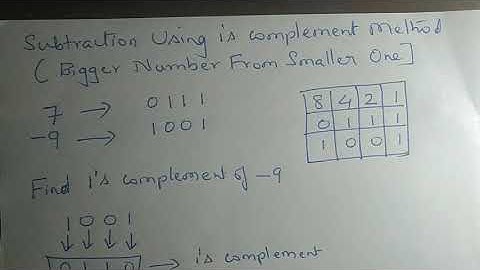 Subtraction Using 1s complement Method
( Bigger Number From Smaller One]
7 → 0111
-9 → 1001
8 4 2 1
0 1 1 1
1 0 0 1
Find 1's complement of -9
1 0 0 1
↓ ↓ ↓ ↓
0 1 1 0 → 1s complement